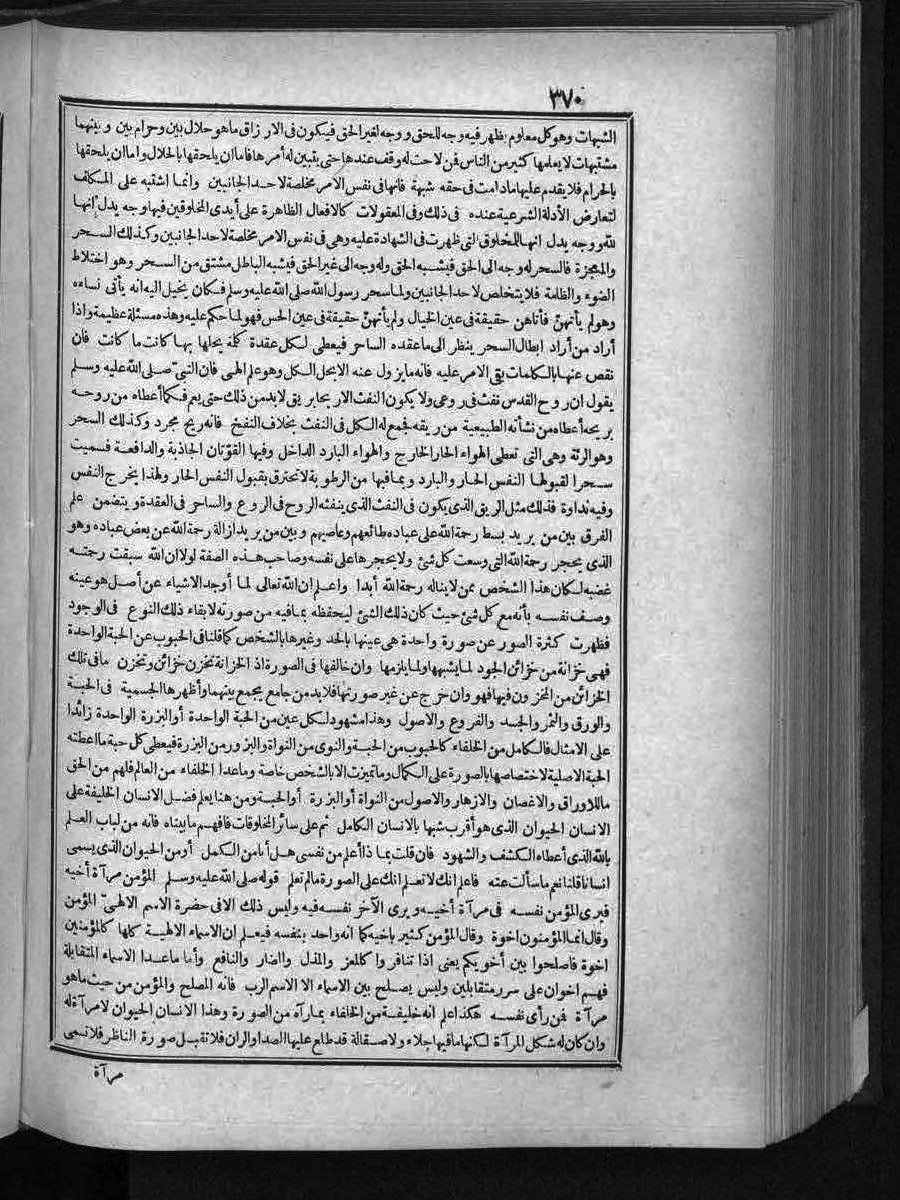 ٣٧٠
الشبهات وهو كل معلوم يظهر فيه وجه للحق ووجه لغير الحق فيكون فى الارزاق ما هو حلال بين وحرام بين وبينهما
مشتبهات لا يعلمها كثير من الناس فمن لاحت له وقف عندها حتى يتبين له أمرها فاما ان يلحقها بالحلال واما ان يلحقها
بالحرام فلا يقدم عليها مادامت فى حقه شبهة فانها فى نفس الامر مخلصة لاحد الجانبين وانما اشتبه على المكلف
لتعارض الأدلة الشرعية عنده فى ذلك وفى المعقولات كالافعال الظاهرة على أيدى المخلوقين فيها وجه يدل انها
لله ووجه يدل انها للمخلوق التى ظهرت فى الشهادة عليه وهى فى نفس الامر مخلصة لاحد الجانبين وكذلك السحر
والمعجزة فالسحر له وجه الى الحق فيشبه الحق وله وجه الى غير الحق فيشبه الباطل مشتق من السحر وهو اختلاط
الضوء والظلمة فلا يتخلص لاحد الجانبين ولما سحر رسول الله صلى الله عليه وسلم فكان يخيل اليه انه يأتى نساءه
وهو لم يأتهنّ فأتاهن حقيقة فى عين الخيال ولم يأتهنّ حقيقة فى عين الحس فهو لما حكم عليه وهذه مسئلة عظيمة واذا
أراد من أراد ابطال السحر ينظر الى ما عقده الساحر فيعطى لكل عقدة كلمة يحلها بها كانت ما كانت فان
نقص عنها بالكلمات بقى الامر عليه فانه ما يزول عنه الا بحل الكل وهو علم الهى فان النبىّ صلى الله عليه وسلم
يقول ان روح القدس نفث فى روعى ولا يكون النفث الا ريحا بريق لابد من ذلك حتى يعم فكما أعطاه من روحه
بريحه أعطاه من نشأته الطبيعية من ريقه فجمع له الكل فى النفث بخلاف النفخ فانه ريح مجرد وكذلك السحر
وهو الرئة وهى التى تعطى الهواء الحار الخارج والهواء البارد الداخل وفيها القوّتان الجاذبة والدافعة فسميت
سحرا لقبولها النفس الحار والبارد وبما فيها من الرطوبة لا تحترق بقبول النفس الحار ولهذا يخرج النفس
وفيه نداوة فذلك مثل الريق الذى يكون فى النفث الذى ينفثه الروح فى الروع والساحر فى العقدة ويتضمن علم
الفرق بين من يريد بسط رحمة الله على عباده طائعهم وعاصيهم وبين من يريد ازالة رحمة الله عن بعض عباده وهو
الذى يحجر رحمة الله التى وسعت كل شئ ولا يحجرها على نفسه وصاحب هذه الصفة لولا ان الله سبقت رحمته
غضبه لكان هذا الشخص ممن لا يناله رحمة الله أبدا واعلم ان الله تعالى لما أوجد الاشياء عن أصل هو عينه
وصف نفسه بأنه مع كل شئ حيث كان ذلك الشئ ليحفظه بما فيه من صورته لابقاء ذلك النوع فى الوجود
فظهرت كثرة الصور عن صورة واحدة هى عينها بالحد وغيرها بالشخص كما قلنا فى الحبوب عن الحبة الواحدة
فهى خزانة من خزائن الجود لما يشبهها ولما يلزمها وان خالفها فى الصورة اذ الخزانة تخزن خزائن وتخزن مافى تلك
الخزائن من المخزون فيها فهو وان خرج عن غير صورتها فلابد من جامع يجمع بينهما وأظهرها الجسمية فى الحبة
والورق والثمر والجسد والفروع والاصول وهذا مشهود لكل عين من الحبة الواحدة أو البزرة الواحدة زائدا
على الامثال فالكامل من الخلفاء كالحبوب من الحبة والنوى من النواة والبزور من البزرة فيعطى كل حبة ما اعطته
الحبة الاصلية لاختصاصها بالصورة على الكمال وما تميزت الا بالشخص خاصة وما عدا الخلفاء من العالم فلهم من الحق
ما للاوراق والاغصان والازهار والاصول من النواة أو البزرة أو الحبة ومن هنا يعلم فضل الانسان الخليفة على
الانسان الحيوان الذى هو أقرب شبها بالانسان الكامل ثم على سائر المخلوقات فافهم ما بيناه فانه من لباب العلم
بالله الذى أعطاه الكشف والشهود فان قلت بماذا أعلم من نفسى هل أنا من الكمل أو من الحيوان الذى يسمى
انسانا قلنا نعم ما سألت عنه فاعلم انك لا تعلم انك على الصورة ما لم تعلم قوله صلى الله عليه وسلم المؤمن مرآة أخيه
فيرى المؤمن نفسه فى مرآة أخيه ويرى الآخر نفسه فيه وليس ذلك الا فى حضرة الاسم الالهىّ المؤمن
وقال انما المؤمنون اخوة وقال المؤمن كثير باخيه كما انه واحد بنفسه فيعلم ان الاسماء الالهية كلها كالمؤمنين
اخوة فاصلحوا بين أخويكم يعنى اذا تنافروا كالمعز والمذل والضار والنافع وأما ما عدا الاسماء المتقابلة
فهم اخوان على سرر متقابلين وليس يصلح بين الاسماء الا الاسم الرب فانه المصلح والمؤمن من حيث ما هو
مرآة فمن رأى نفسه هكذا علم انه خليفة من الخلفاء بما رآه من الصورة وهذا الانسان الحيوان لا مرآة له
وان كان له شكل المرآة لكنها ما فيها جلاء ولا صقالة قد طلع عليها الصدا والران فلا تقبل صورة الناظر فلا تسمى
مرآة